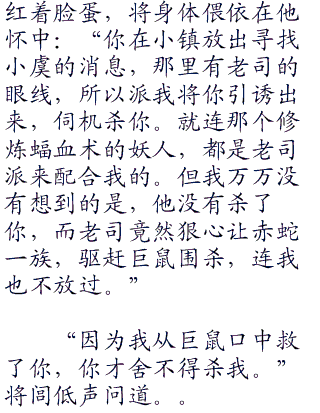 红着脸蛋，将身体偎依在他
怀中：“你在小镇放出寻找
小虞的消息，那里有老司的
眼线，所以派我将你引诱出
来，伺机杀你。就连那个修
炼蝠血术的妖人，都是老司
派来配合我的。但我万万没
有想到的是，他没有杀了
你，而老司竟然狠心让赤蛇
一族，驱赶巨鼠围杀，连我
也不放过。”
“因为我从巨鼠口中救
了你，你才舍不得杀我。”
将闾低声问道。。